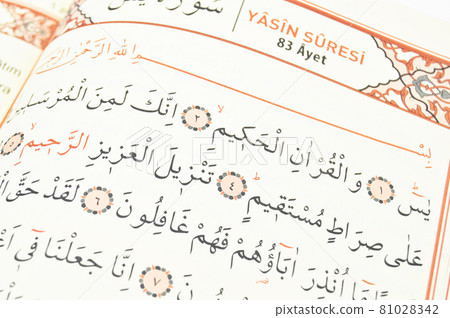 سُورَةُ يٰسٓ
YÂSÎN SÛRESİ
83 Âyet
بِسْمِ اللّٰهِ الرَّحْمٰنِ الرَّحِيمِ
يٰسٓ ١ وَالْقُرْاٰنِ الْحَكِيمِۙ ٢ اِنَّكَ لَمِنَ الْمُرْسَلِ
عَلٰى صِرَاطٍ مُسْتَقِيمٍۜ ٤ تَنْزِيلَ الْعَزِيزِ الرَّحِيمِۙ ٥
مَٓا اُنْذِرَ اٰبَٓاؤُهُمْ فَهُمْ غَافِلُونَ ٦ لَقَدْ حَقَّ الْ
٧ اِنَّا جَعَلْنَا فِٓي اَعْ
81028342